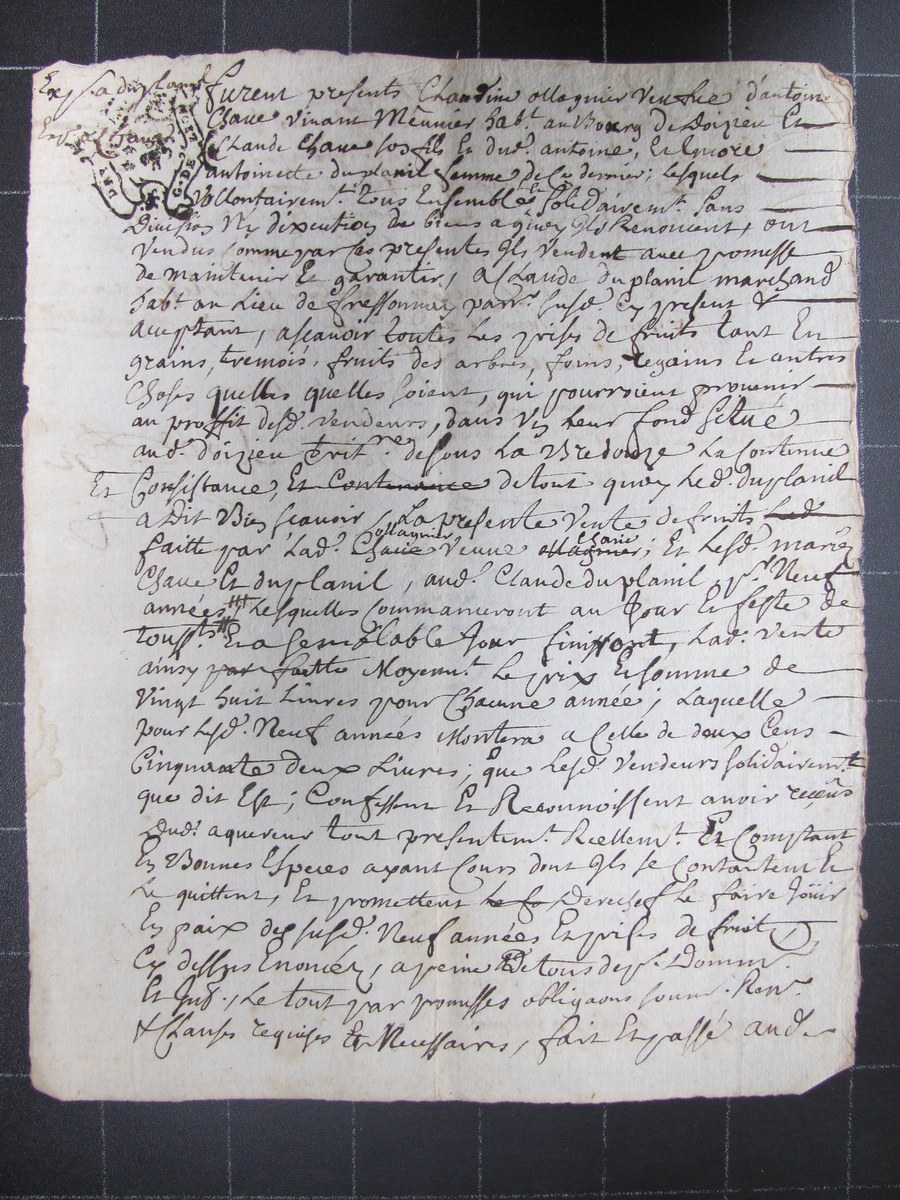 Exp. a duplanil
Exp. a Chave
furent presents Claudine ollagnier veufue d'antoine
Chave vivant Meunier hab.t au Bourg de Doizieu Et
Claude Chave son fils Et dud. antoine, Et encore
antoinette duplanil femme de Ce dernier; lesquels
vollontairem.t tous Ensemble Et Solidairem.t sans
Division Ny dixcution de biens a quoy ils Renoncent, ont
vendus comme par ces presentes ils vendent avec promesse
de maintenir Et garanter, a Claude duplanil marchand
hab.t au Lieu de fressonnay parr.e susd. Cy present &
acceptant, ascavoir toutes les prises de fruits tant En
grains, tremois, fruits des arbres, foins, regains Et autres
Choses quelles quelles soient, qui pourroient provenir
au proffit desd. vendeurs, dans Un leur fond scitué
aud. doizieu territ.re de sous la Bredouze La Contenue
Et Consistance, Et Contenance de tout quoy led. duplanil
a dit Bien scavoir La presente vente de fruits Led
faitte par Lad. Chave ollagnier veuve ollagnier Chave; Et lesd. mariés
Chave Et duplanil, aud. Claude duplanil p.r Neuf
années, Lesquelles Commanceront au Jour Et feste de
touss.ts Et a semblable Jour finiront, Lad. vente
ainsy par faitte Moyen.t Le prix Et somme de
Vingt huit Livres pour Chacune année; Laquelle
pour Lesd. Neuf années Montera a Celle de deux Cens
Cinquante deux Livres; que lesd. vendeurs solidairem.t
que dit Est; Confessent Et Reconnoissent avoir receus
dud. aquereur tout presentem.t Reellem.t Et Comptant
En Bonnes Especes ayant Cours dont ils se Contantent Et
Le quittent, Et promettent le fe Derechef Le faire Joüir
En paix des susd. Neuf années Et prises de fruit
Cy dessus Enoncéz, a peine De tous dep.s Domm.
Et Int., Le tout par promesses obligaons soum. Ren.
& Clauses requises Et Necessaires, fait Et passé aud.